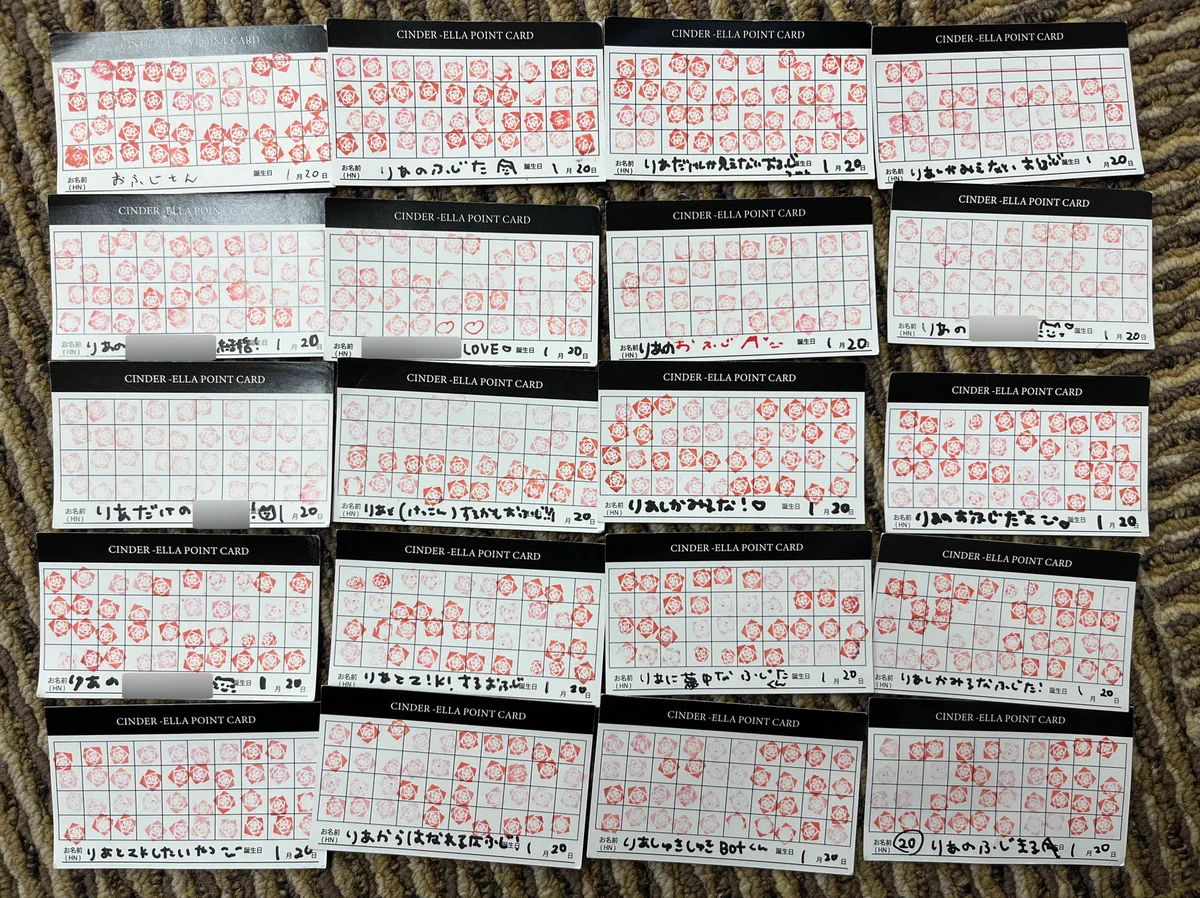 CINDER-ELLA POINT CARD
お名前(HN) おふじさん 誕生日 1月20日
CINDER-ELLA POINT CARD
お名前(HN) りあのふじた 誕生日 1月20日
CINDER-ELLA POINT CARD
お名前(HN) りあだけしか見えない 誕生日 1月20日
CINDER-ELLA POINT CARD
お名前(HN) りあしかみえない おふじ 誕生日 1月20日
CINDER-ELLA POINT CARD
お名前(HN) りあの 結婚! 誕生日 1月20日
CINDER-ELLA POINT CARD
お名前(HN) LOVE 誕生日 1月20日
CINDER-ELLA POINT CARD
お名前(HN) りあのおふじ 誕生日 1月20日
CINDER-ELLA POINT CARD
お名前(HN) りあの 誕生日 1月20日
CINDER-ELLA POINT CARD
お名前(HN) りあだけの 1月20日
CINDER-ELLA POINT CARD
お名前(HN) りあと(けっこん)するかも おふじ!! 20日
CINDER-ELLA POINT CARD
お名前(HN) りあしかみるな!♡ 1月20日
CINDER-ELLA POINT CARD
お名前(HN) りあのおふじだよ 1月20日
CINDER-ELLA POINT CARD
お名前(HN) りあの 誕生日 1月20日
CINDER-ELLA POINT CARD
お名前(HN) りあとZ!K!するおふじ 誕生日 1月20日
CINDER-ELLA POINT CARD
お名前(HN) りあに夢中な ふじたくん 誕生日 1月20日
CINDER-ELLA POINT CARD
お名前(HN) りあしかみるなふじた! 誕生日 1月20日
CINDER-ELLA POINT CARD
お名前(HN) りあとZKしたい 誕生日 1月20日
CINDER-ELLA POINT CARD
お名前(HN) りあからはなれるな 1月20日
CINDER-ELLA POINT CARD
お名前(HN) りあしゅきしゅきBotくん 誕生日 1月20日
CINDER-ELLA POINT CARD
お名前(HN) ⑳ りあのふじ 誕生日 1月20日